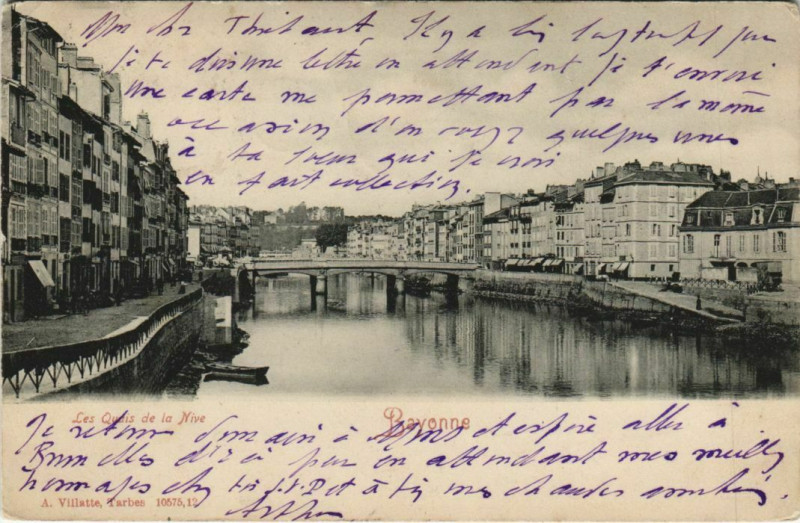 Mon ch Thibaut, Il y a bien longtemps que
je te dois une lettre en attendant je t'envoi
Une carte me permettant par la même
occasion d'en voyer quelques unes
à ta soeur qui je crois
en fait collection.
Les Quais de la Nive
Bayonne
Je retourn demain à et espère aller à
Bruxelles d'ici peu en attendant mes meilleurs
hommages chez toi et à toi mes chaudes amitiés,
Arthur
A. Villatte, Tarbes 10575,12